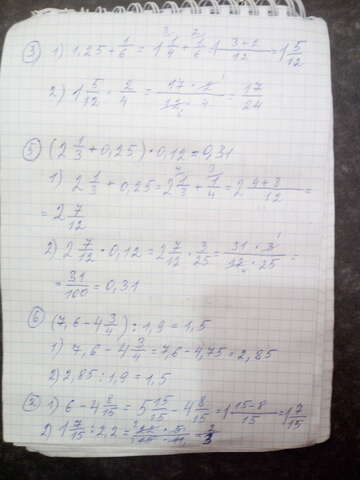 ③ 1) 1,25 + 1/6 = 1 1/4 + 1/6 = 1 (3+2)/12 = 1 5/12
2) 1 5/12 · 2/4 = (17 · 2)/(12 · 4) = 17/24
⑤ (2 1/3 + 0,25) · 0,12 = 0,31
1) 2 1/3 + 0,25 = 2 1/3 + 1/4 = 2 (4+3)/12 =
= 2 7/12
2) 2 7/12 · 0,12 = 2 7/12 · 3/25 = (31 · 3)/(12 · 25) =
= 31/100 = 0,31
⑥ (7,6 - 4 3/4) : 1,9 = 1,5
1) 7,6 - 4 3/4 = 7,6 - 4,75 = 2,85
2) 2,85 : 1,9 = 1,5
③ 1) 6 - 4 8/15 = 5 15/15 - 4 8/15 = 1 (15-8)/15 = 1 7/15
2) 1 7/15 : 2,2 = = 2/3